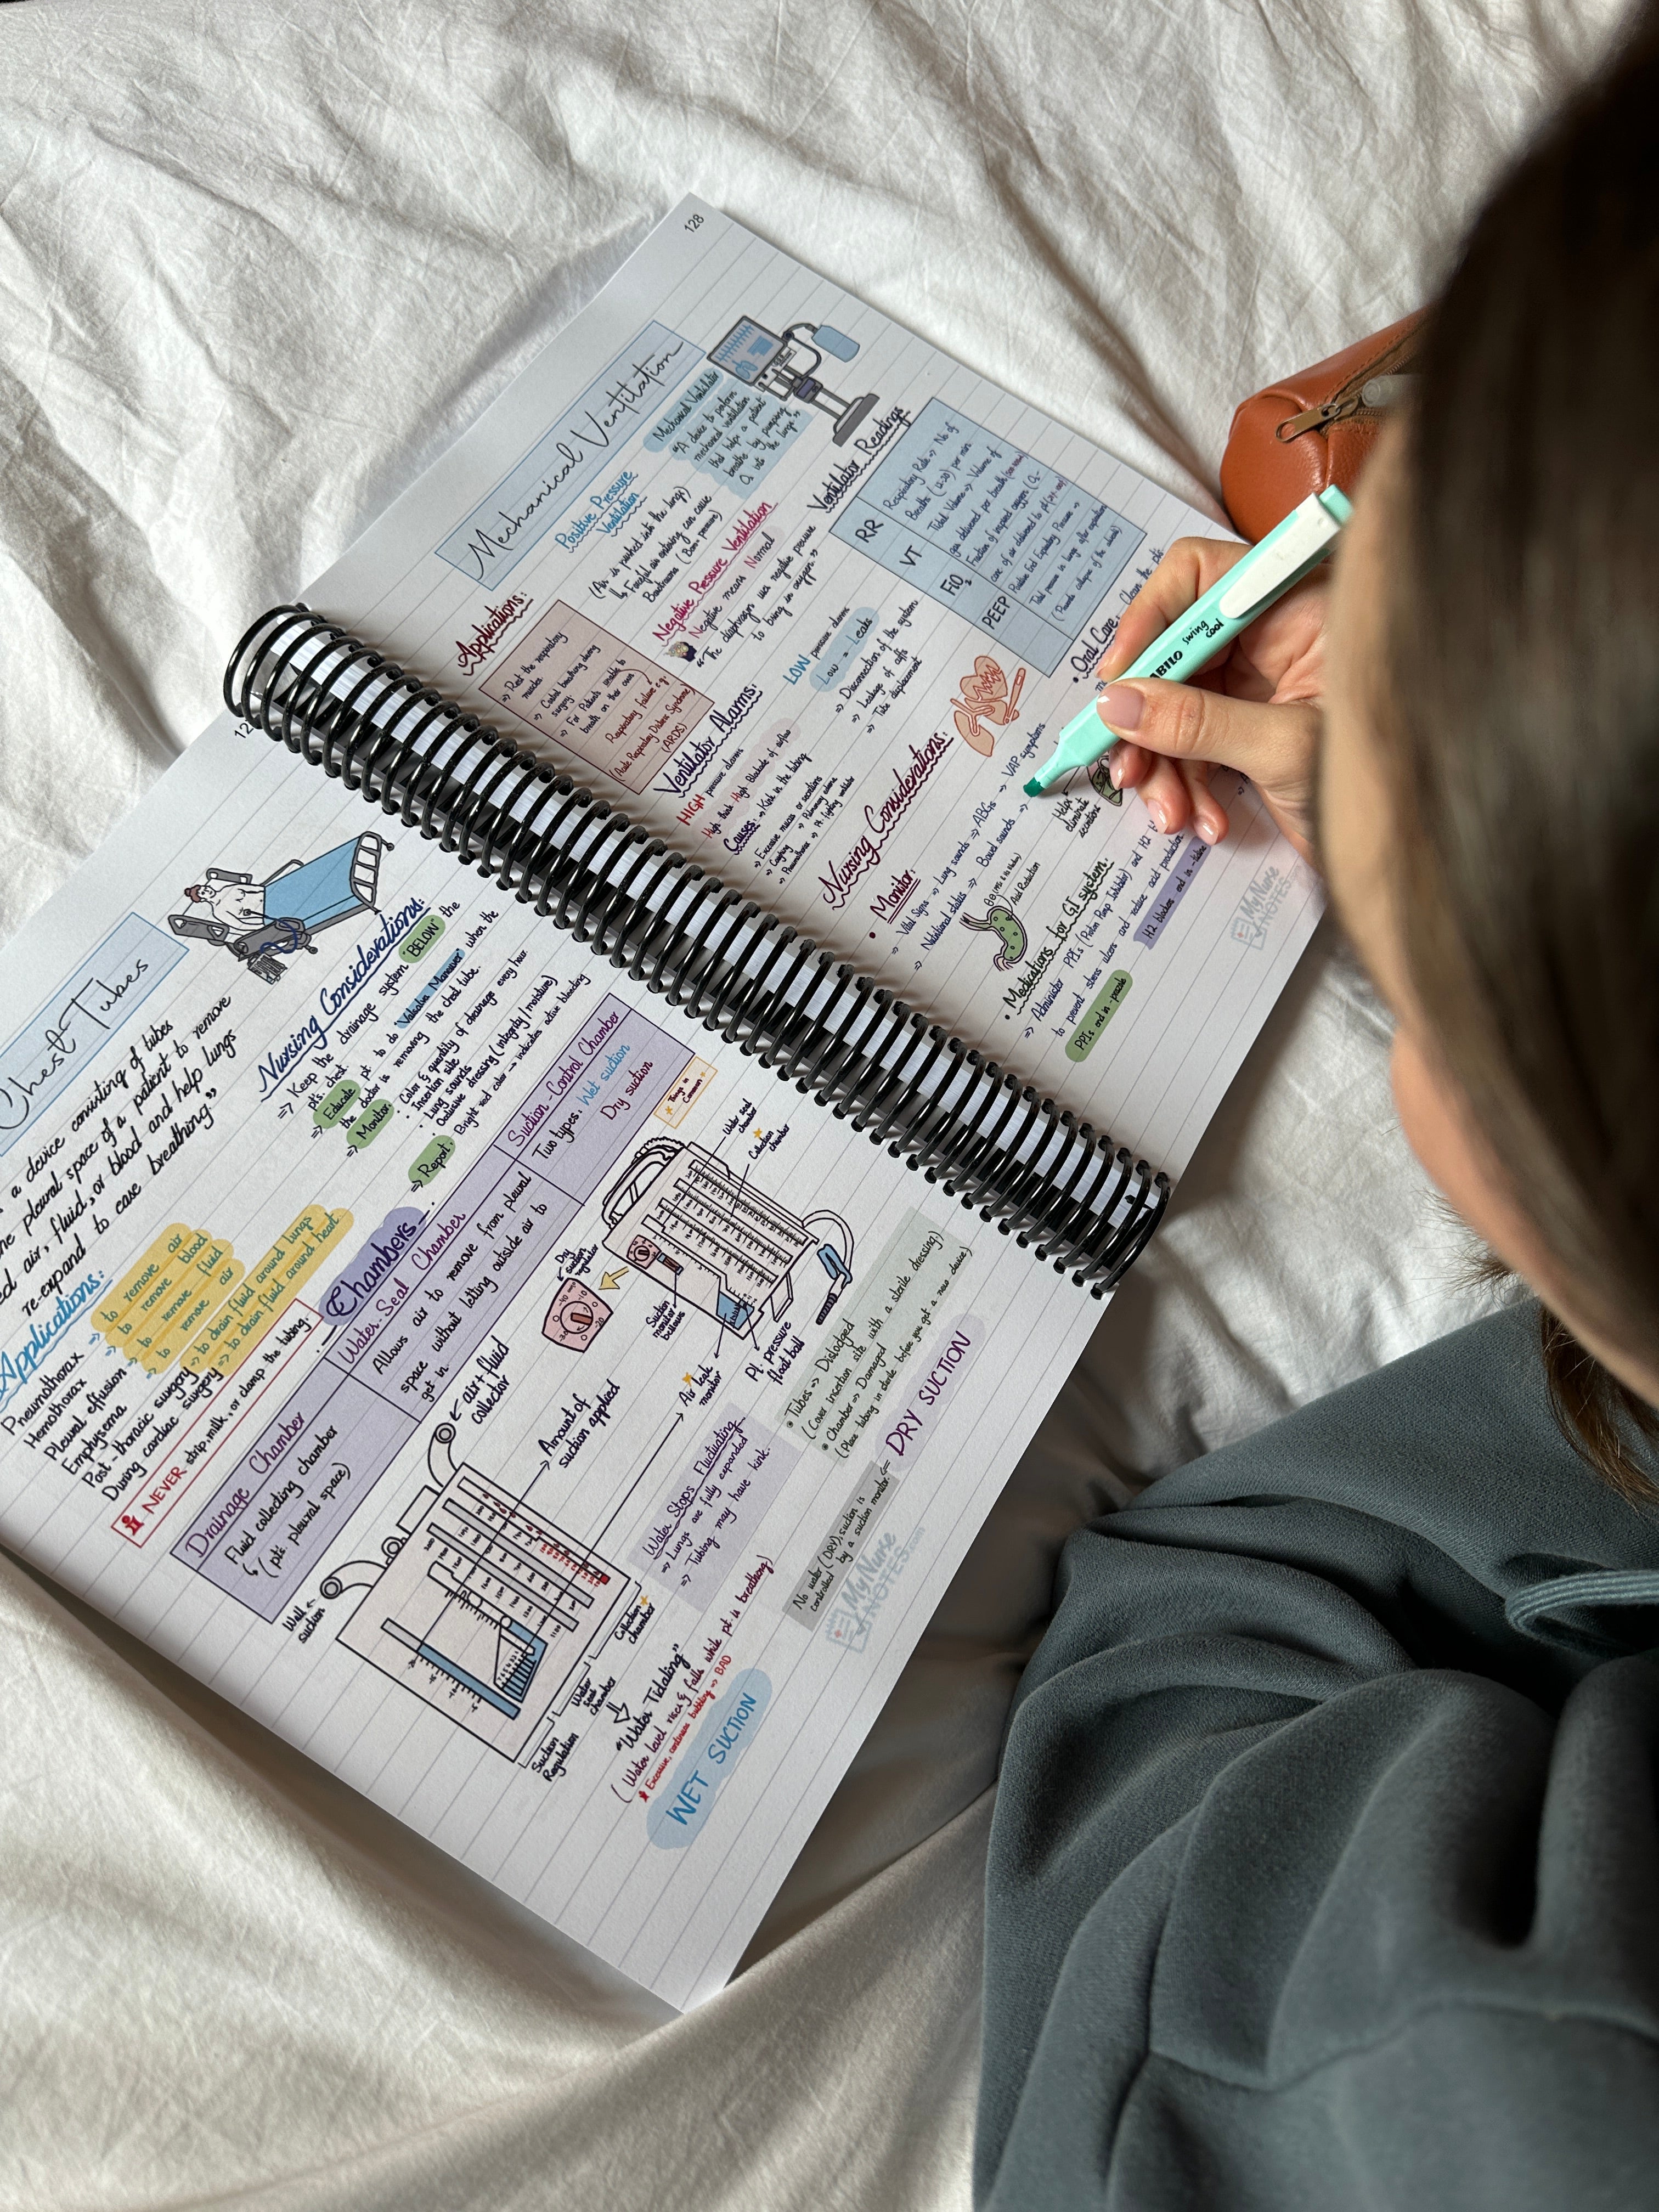 Chest Tubes
a device consisting of tubes
pleural space of a patient to remove
air, fluid, or blood and help lungs
re-expand to ease breathing"
Applications:
Pneumothorax → to remove air
Hemothorax → to remove blood
Pleural effusion → to remove fluid
Emphysema → to remove air
Post-thoracic surgery → to drain fluid around lungs
During cardiac surgery → to drain fluid around heart
NEVER strip, milk, or clamp the tubing.
Nursing Considerations:
⇒ Keep the drainage system BELOW the
pt's chest
⇒ Educate pt to do 'Valsalva Maneuver' when the
the doctor is removing the chest tube.
⇒ Monitor:
• Color & quantity of drainage every hour
• Insertion site
• Lung sounds
• Occlusive dressing (integrity/moisture)
⇒ Report: Bright red color → indicates active bleeding
Chambers
Drainage Chamber
Fluid collecting chamber
↳ (pts. pleural space)
Water-Seal Chamber
Allows air to remove from pleural
space without letting outside air to
get in.
Suction-Control Chamber
Two types: Wet suction
Dry suction
Things in
Common
Water seal
chamber
Collection
chamber
Dry
suction
regulator
Suction
monitor
bellows
Pt. pressure
float ball
Air leak
monitor
Wall
suction
air + fluid
collector
Amount of
suction applied
Collection
chamber
Water
seal
chamber
Suction
Regulation
"Water Tidaling"
(Water level rises & falls while pt. is breathing)
* Excessive, continuous bubbling → BAD
WET SUCTION
Water Stops Fluctuating
⇒ Lungs are fully expanded
⇒ Tubing may have kink.
• Tubes ⇒ Dislodged
(Cover insertion site with a sterile dressing)
• Chamber ⇒ Damaged
(Place tubing in sterile before you get a new device)
DRY SUCTION
No water (DRY), suction is
controlled by a suction monitor.
MyNurse
NOTES.com
128
Mechanical Ventilation
Mechanical Ventilator
"A device to perform
mechanical ventilation
that helps a patient
breathe by pumping
O₂ into the lungs"
Positive Pressure
Ventilation
(Air is pushed into the lungs)
↳ Forceful air entering can cause
Barotrauma (Baro-pressure)
Negative Pressure Ventilation
Negative means Normal
"The diaphragm use negative pressure
to bring in oxygen"
Applications:
⇒ Rest the respiratory
muscles
⇒ Control breathing during
surgery.
⇒ For Patients unable to
breath on their own
Respiratory failure e.g:
(Acute Respiratory Distress Syndrome)
(ARDS)
Ventilator Readings
RR
Respiratory Rate ⇒ No of
Breaths (12-20) per min
VT
Tidal Volume ⇒ Volume of
gas delivered per breath
FiO₂
Fraction of inspired oxygen
conc. of air delivered to pt
PEEP
Positive End Expiratory Pressure ⇒
Total pressure in lungs after expiration
(Prevents collapse of the alveoli)
Ventilator Alarms:
HIGH pressure alarms
High Peak High Blockade of airflow
Causes: ⇒ Kink in the tubing
⇒ Excessive mucus or secretions
⇒ Coughing
⇒ Pulmonary edema
⇒ Pneumothorax
⇒ Pt. fighting ventilator
LOW pressure alarms
Low = Leaks
⇒ Disconnection of the system
⇒ Leakage of cuffs
⇒ Tube displacement
Nursing Considerations:
• Monitor:
⇒ Vital Signs ⇒ Lung sounds ⇒ ABGs ⇒ VAP symptoms
⇒ Nutritional status ⇒ Bowel sounds ⇒
• Oral Care: Clean the pt's
Helps
eliminate
secretions
Acid Reduction
• Medications for GI system:
⇒ Administer PPIs (Proton Pump Inhibitor) and H2
to prevent stress ulcers and reduce acid production
PPIs end in -prazole
H2 blockers end in -tidine
MyNurse
NOTES
STABILO swing
cool